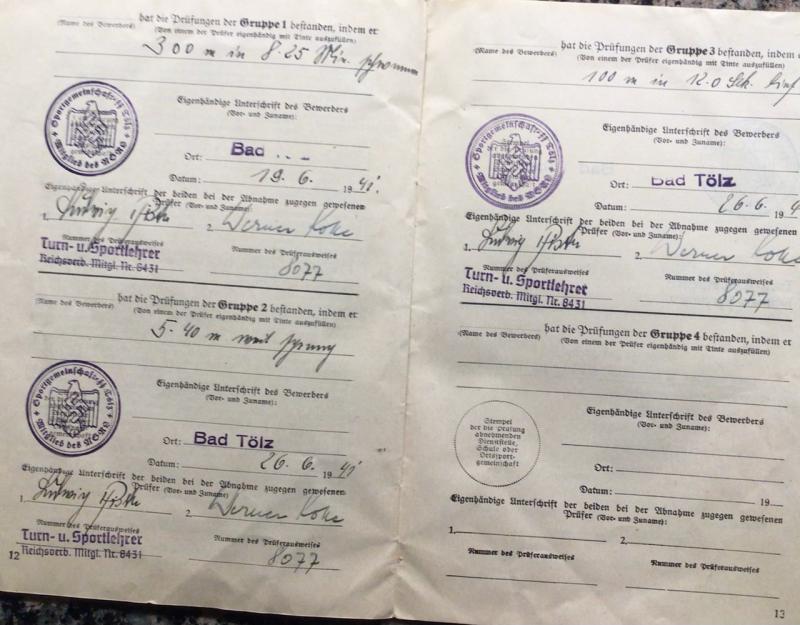 hat die Prüfungen der Gruppe 1 bestanden, indem er
(Name des Bewerbers) (Von einem der Prüfer eigenhändig mit Tinte auszufüllen)
300 m in 8.25 Min.
Sportgemeinschaft Tölz
Mitglied des NSRL
Eigenhändige Unterschrift des Bewerbers
(Vor- und Zuname):
Ort: Bad
Datum: 19.6. 19
Eigenhändige Unterschrift der beiden bei der Abnahme zugegen gewesenen
Prüfer (Vor- und Zuname):
1. Ludwig 2. Werner
Nummer des Prüferausweises
Nummer des Prüferausweises
Turn- u. Sportlehrer
Reichsverb. Mitgl. Nr. 8431
8077
hat die Prüfungen der Gruppe 2 bestanden, indem er
(Name des Bewerbers) (Von einem der Prüfer eigenhändig mit Tinte auszufüllen)
5.40 m weit sprung
Sportgemeinschaft Tölz
Mitglied des NSRL
Eigenhändige Unterschrift des Bewerbers
(Vor- und Zuname):
Ort: Bad Tölz
Datum: 26.6. 19
Eigenhändige Unterschrift der beiden bei der Abnahme zugegen gewesenen
Prüfer (Vor- und Zuname):
1. Ludwig 2. Werner
Nummer des Prüferausweises
Nummer des Prüferausweises
Turn- u. Sportlehrer
Reichsverb. Mitgl. Nr. 8431
8077
12
hat die Prüfungen der Gruppe 3 bestanden, indem
(Name des Bewerbers) (Von einem der Prüfer eigenhändig mit Tinte auszufüllen)
100 m in 12.0 Sek. lief
Sportgemeinschaft Tölz
Mitglied des NSRL
Eigenhändige Unterschrift des Bewerbers
(Vor- und Zuname):
Ort: Bad Tölz
Datum: 26.6. 19
Eigenhändige Unterschrift der beiden bei der Abnahme zugegen gewesenen
Prüfer (Vor- und Zuname):
1. Ludwig 2. Werner
Nummer des Prüferausweises
Nummer des Prüferausweises
Turn- u. Sportlehrer
Reichsverb. Mitgl. Nr. 8431
8077
hat die Prüfungen der Gruppe 4 bestanden, indem er
(Name des Bewerbers) (Von einem der Prüfer eigenhändig mit Tinte auszufüllen)
Stempel
der die Prüfung
abnehmenden
Dienststelle,
Schule oder
Ortssport-
gemeinschaft
Eigenhändige Unterschrift des Bewerbers
(Vor- und Zuname):
Ort:
Datum: 19
Eigenhändige Unterschrift der beiden bei der Abnahme zugegen gewesenen
Prüfer (Vor- und Zuname):
1. 2.
Nummer des Prüferausweises
Nummer des Prüferausweises
13